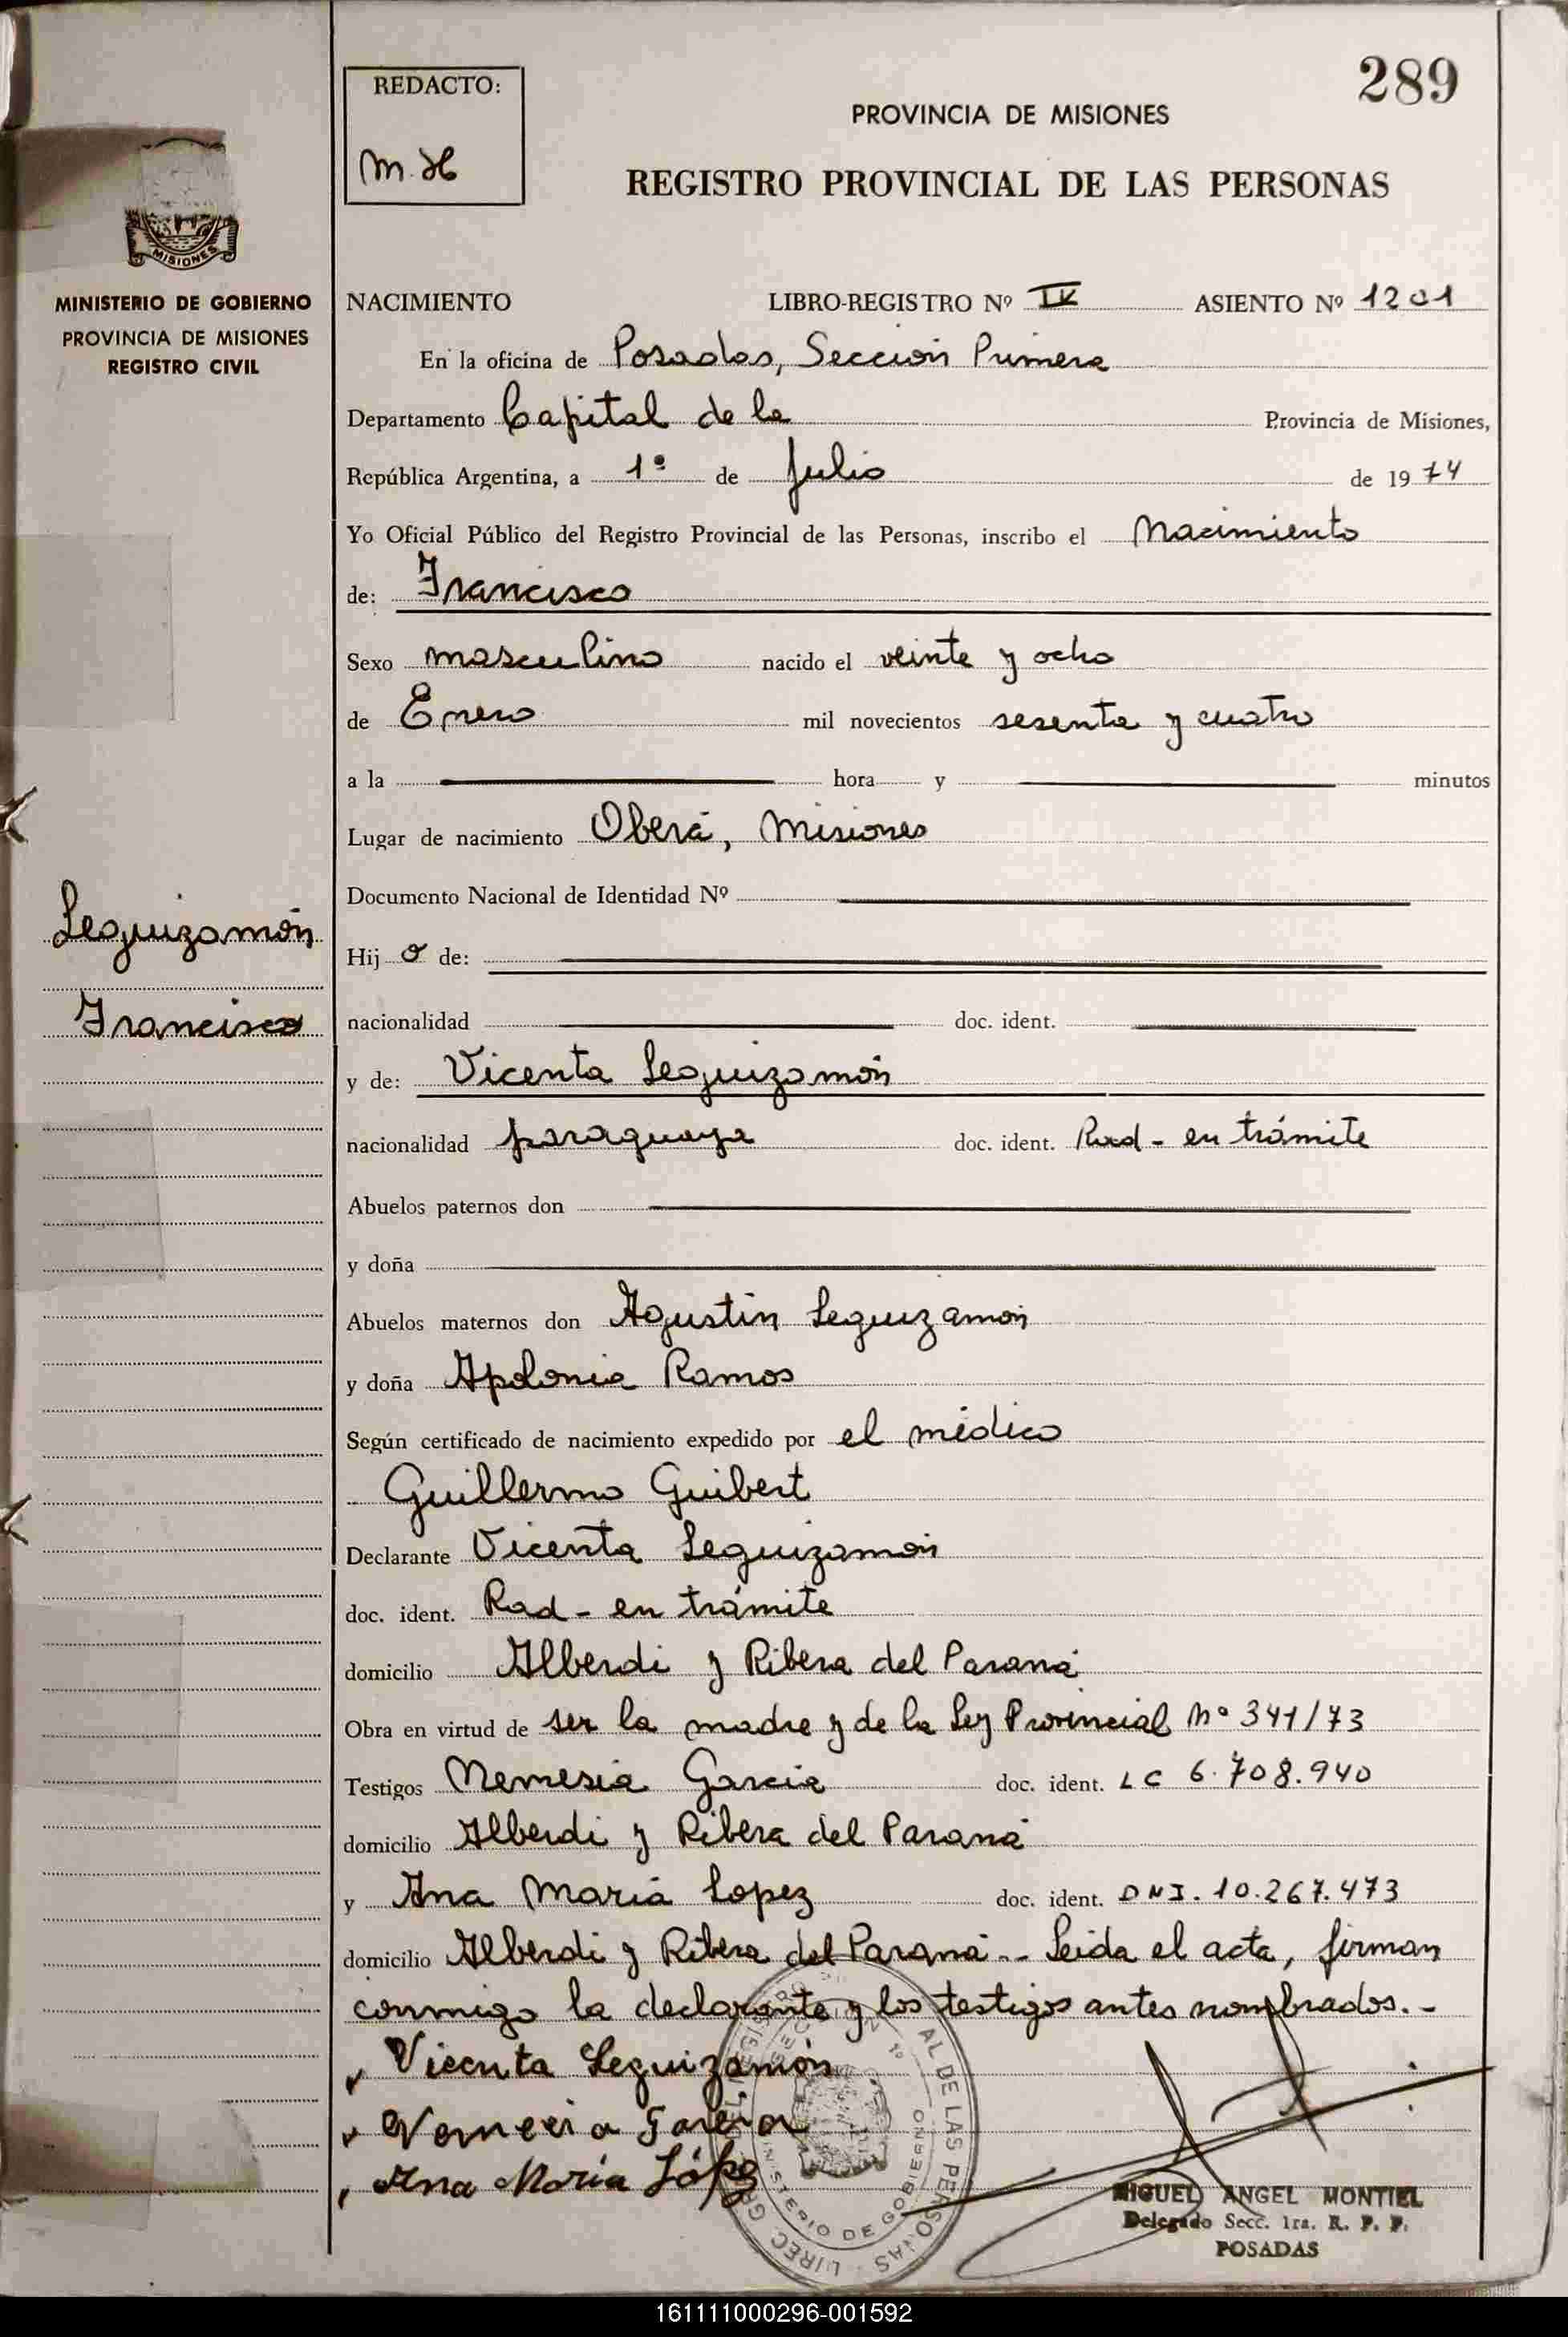 289
REDACTO:
M. H
PROVINCIA DE MISIONES
REGISTRO PROVINCIAL DE LAS PERSONAS
MISIONES
MINISTERIO DE GOBIERNO
PROVINCIA DE MISIONES
REGISTRO CIVIL
NACIMIENTO LIBRO-REGISTRO Nº IV ASIENTO Nº 1201
En la oficina de Posadas, Sección Primera
Departamento Capital de la Provincia de Misiones,
República Argentina, a 1º de Julio de 1974
Yo Oficial Público del Registro Provincial de las Personas, inscribo el Nacimiento
de: Francisco
Sexo masculino nacido el veinte y ocho
de Enero mil novecientos sesenta y cuatro
a la hora y minutos
Lugar de nacimiento Oberá, Misiones
Documento Nacional de Identidad Nº
Leguizamón
Francisco
Hijo de:
nacionalidad doc. ident.
y de: Vicenta Leguizamón
nacionalidad paraguaya doc. ident. Rad - en trámite
Abuelos paternos don
y doña
Abuelos maternos don Agustín Leguizamón
y doña Apolonia Ramos
Según certificado de nacimiento expedido por el médico
Guillermo Guibert
Declarante Vicenta Leguizamón
doc. ident. Rad - en trámite
domicilio Alberdi y Ribera del Paraná
Obra en virtud de ser la madre y de la Ley Provincial Nº 341/73
Testigos Nemesia Garcia doc. ident. LC 6.708.940
domicilio Alberdi y Ribera del Paraná
y Ana María Lopez doc. ident. DNI. 10.267.473
domicilio Alberdi y Ribera del Paraná.- Leida el acta, firman
conmigo la declarante y los testigos antes nombrados.-
Vicenta Leguizamón
Ana María López
MIGUEL ANGEL MONTIEL
Delegado Secc. 1ra. R. P. P.
POSADAS
161111000296-001592